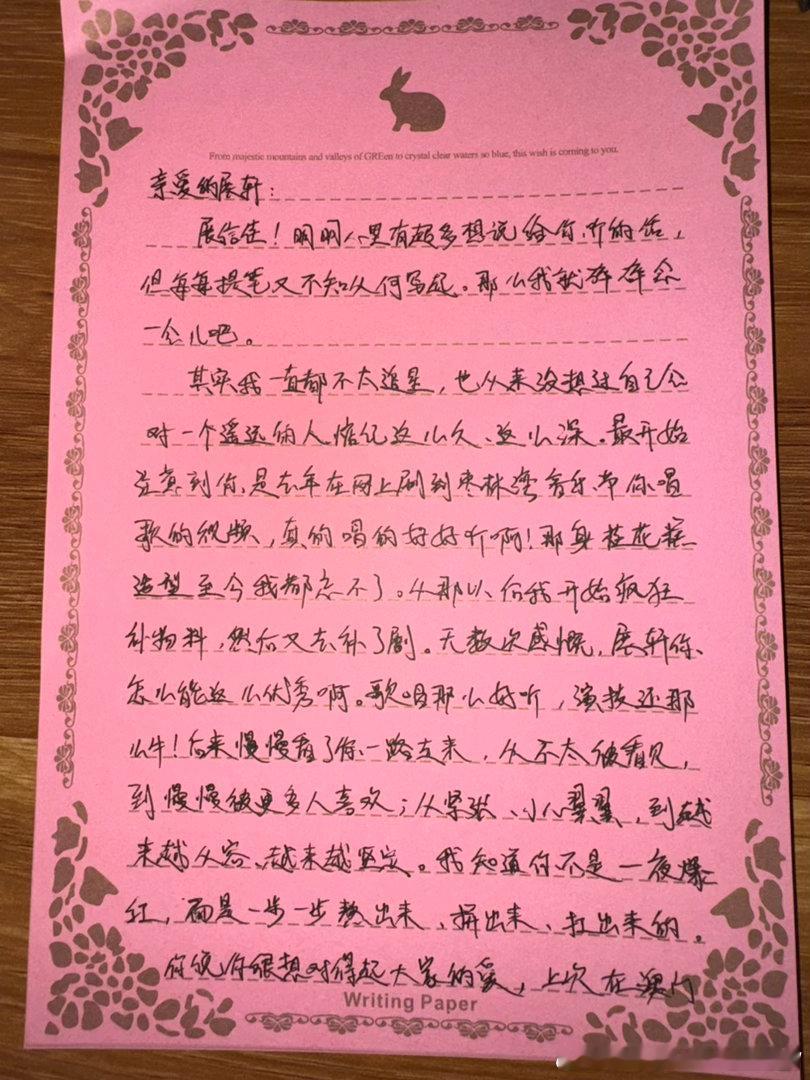 From majestic mountains and valleys of GREen to crystal clear waters so blue, this wish is coming to you.
亲爱的展轩：
展信佳！明明心里有超多想说给你听的话，
但每每提笔又不知从何写起。那么我就碎碎念
一会儿吧。
其实我一直都不太追星，也从来没想过自己会
对一个遥远的人惦记这么久、这么深。最开始
注意到你，是去年在网上刷到枣林湾音乐节你唱
歌的视频，真的唱的好好听啊！那身桂花糕
造型至今我都忘不了。从那以后我开始疯狂
补物料，然后又去补了剧。无数次感慨，展轩你
怎么能这么优秀啊。歌唱那么好听，演技还那
么牛！后来慢慢看了你一路走来，从不太被看见，
到慢慢被更多人喜欢；从紧张、小心翼翼，到越
来越从容、越来越坚定。我知道你不是一夜爆
红，而是一步一步熬出来、拼出来、扛出来的。
你说你很想对得起大家的爱，上次在澳门
Writing Paper